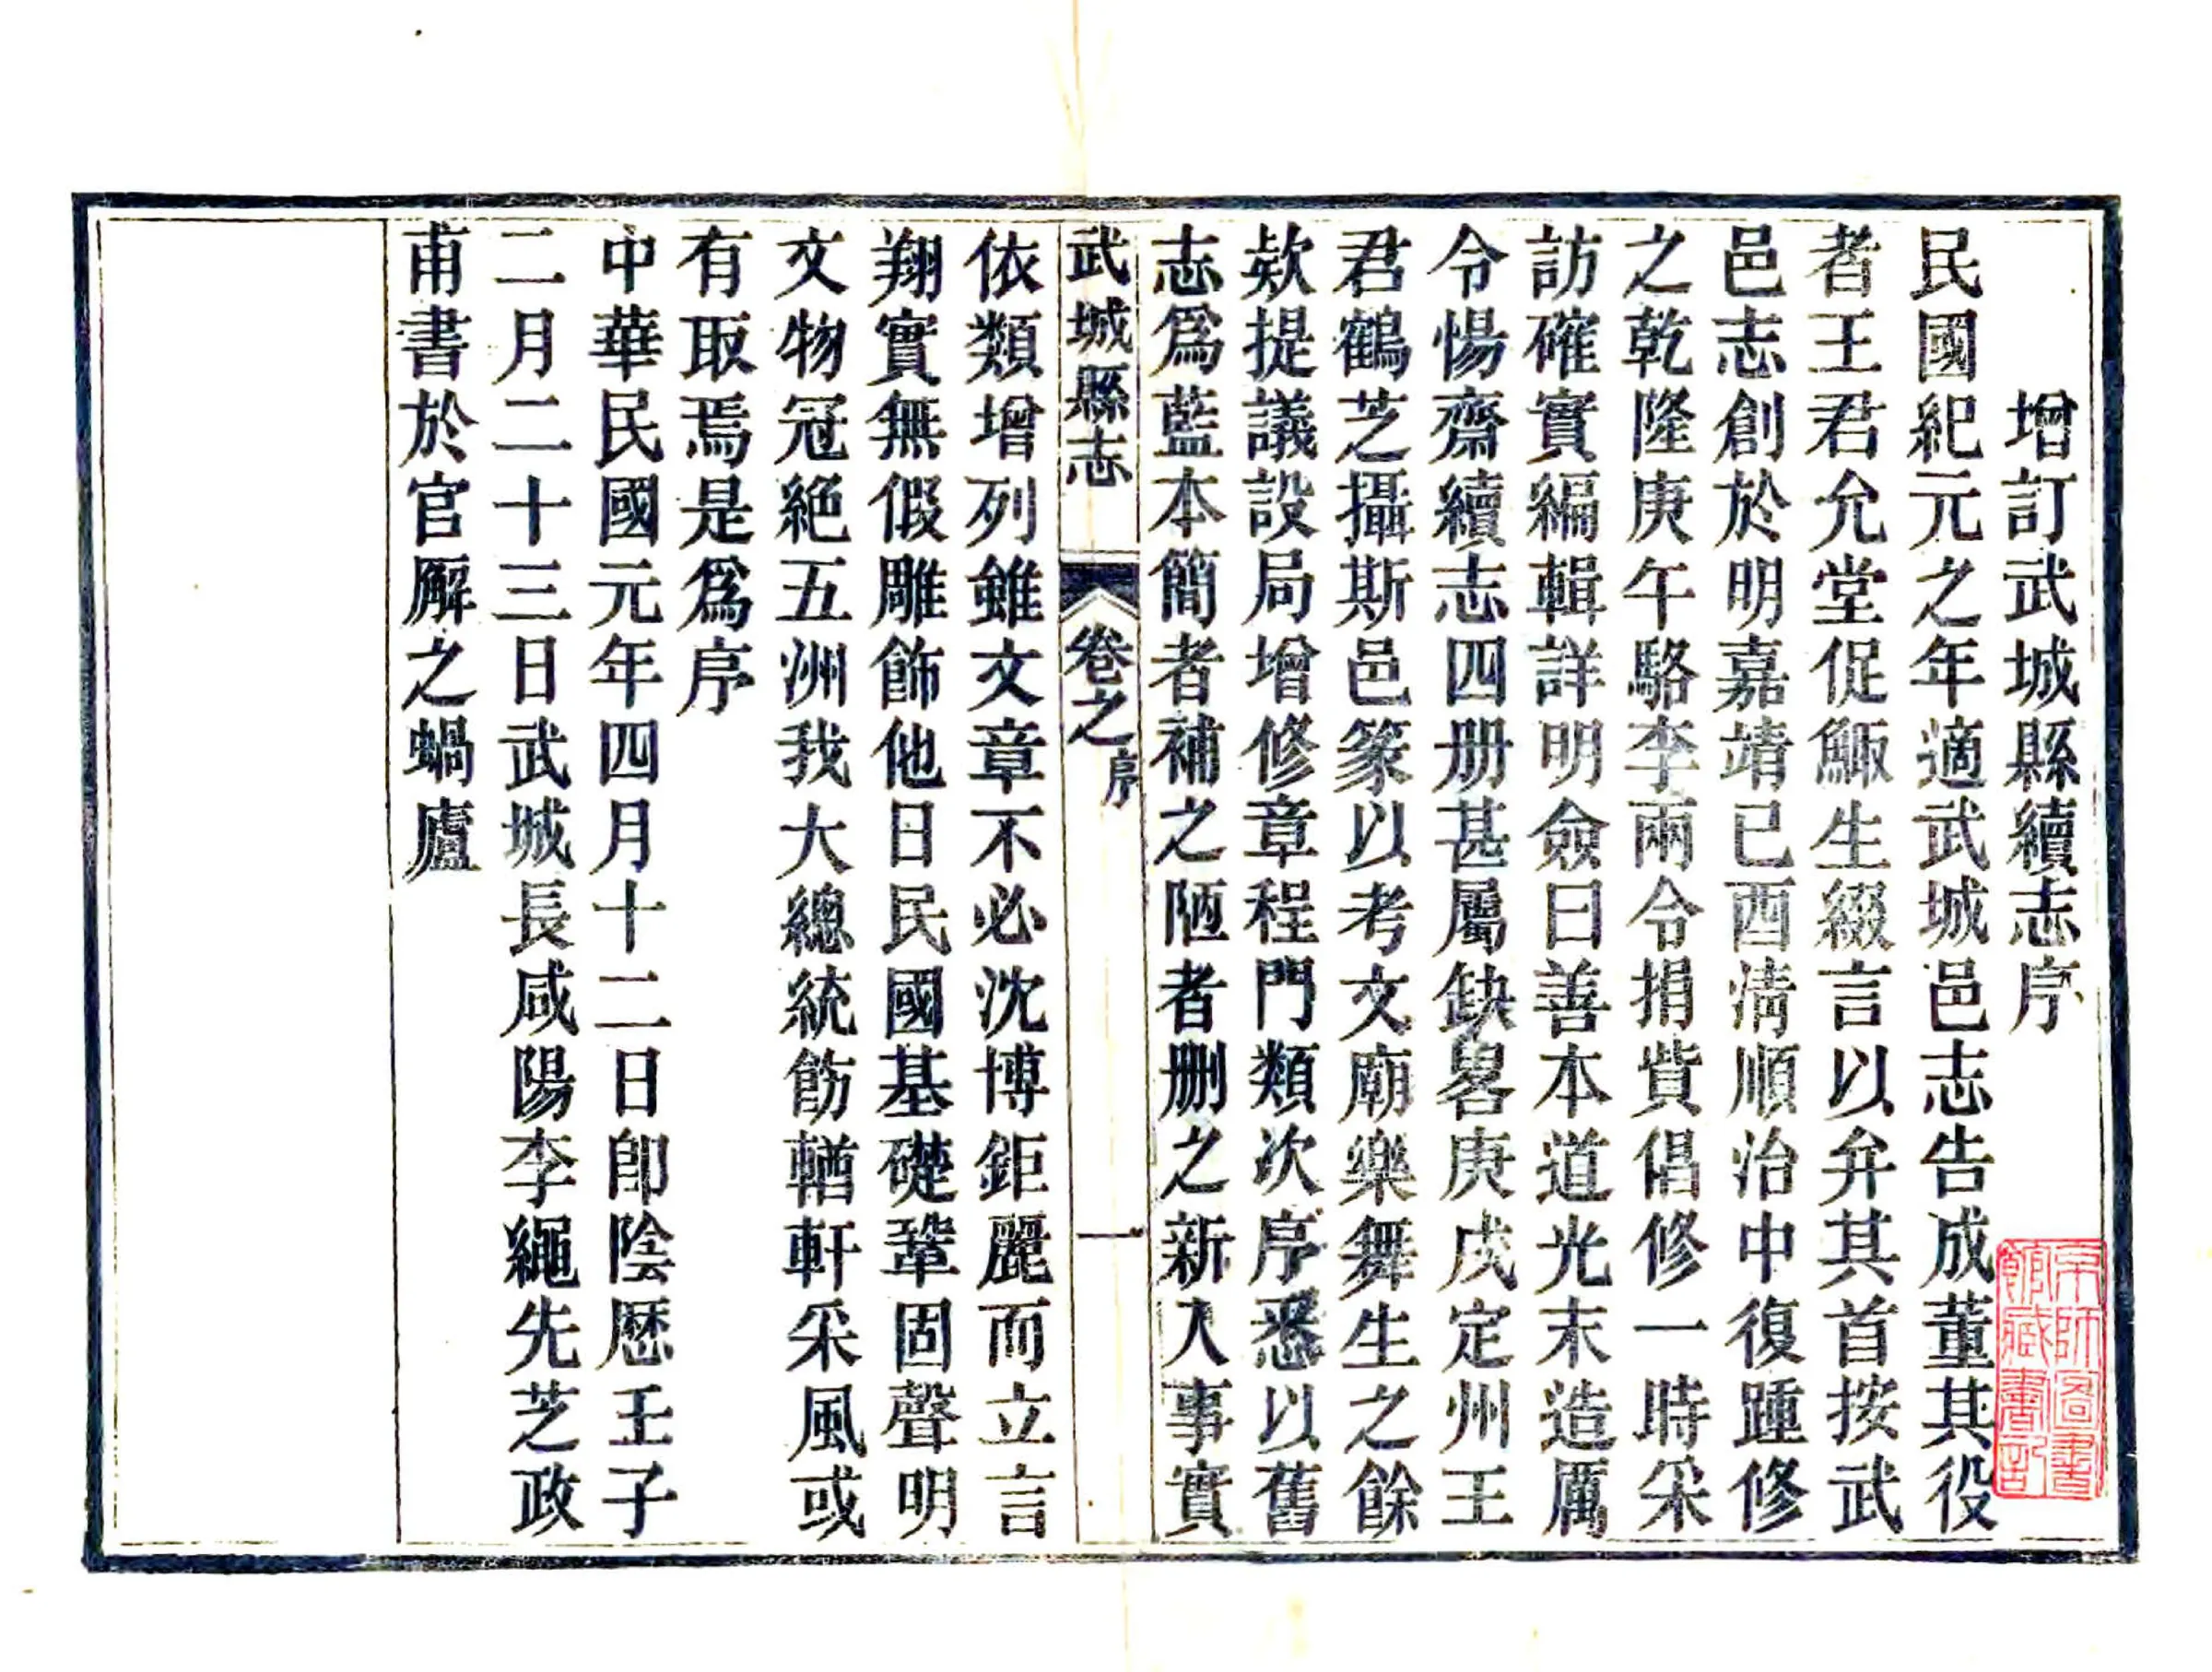 增訂武城縣續志序
民國紀元之年適武城邑志告成董其役
者王君允堂促鯫生綴言以弁其首按武
邑志創於明嘉靖已酉淸順治中復踵修
之乾隆庚午駱李兩令捐貲倡修一時采
訪確實編輯詳明僉曰善本道光末造厲
令惕齋續志四册甚屬缺畧庚戌定州王
君鶴芝攝斯邑篆以考文廟樂舞生之餘
欵提議設局增修章程門類次序悉以舊
志爲藍本簡者補之陋者删之新入事實
武城縣志 卷之序 一
依類增列雖文章不必沈博鉅麗而立言
翔實無假雕飾他日民國基礎鞏固聲明
文物冠絕五洲我大總統飭輶軒采風或
有取焉是爲序
中華民國元年四月十二日卽陰歷壬子
二月二十三日武城長咸陽李繩先芝政
甫書於官廨之蝸廬
京師圖書
館藏書記